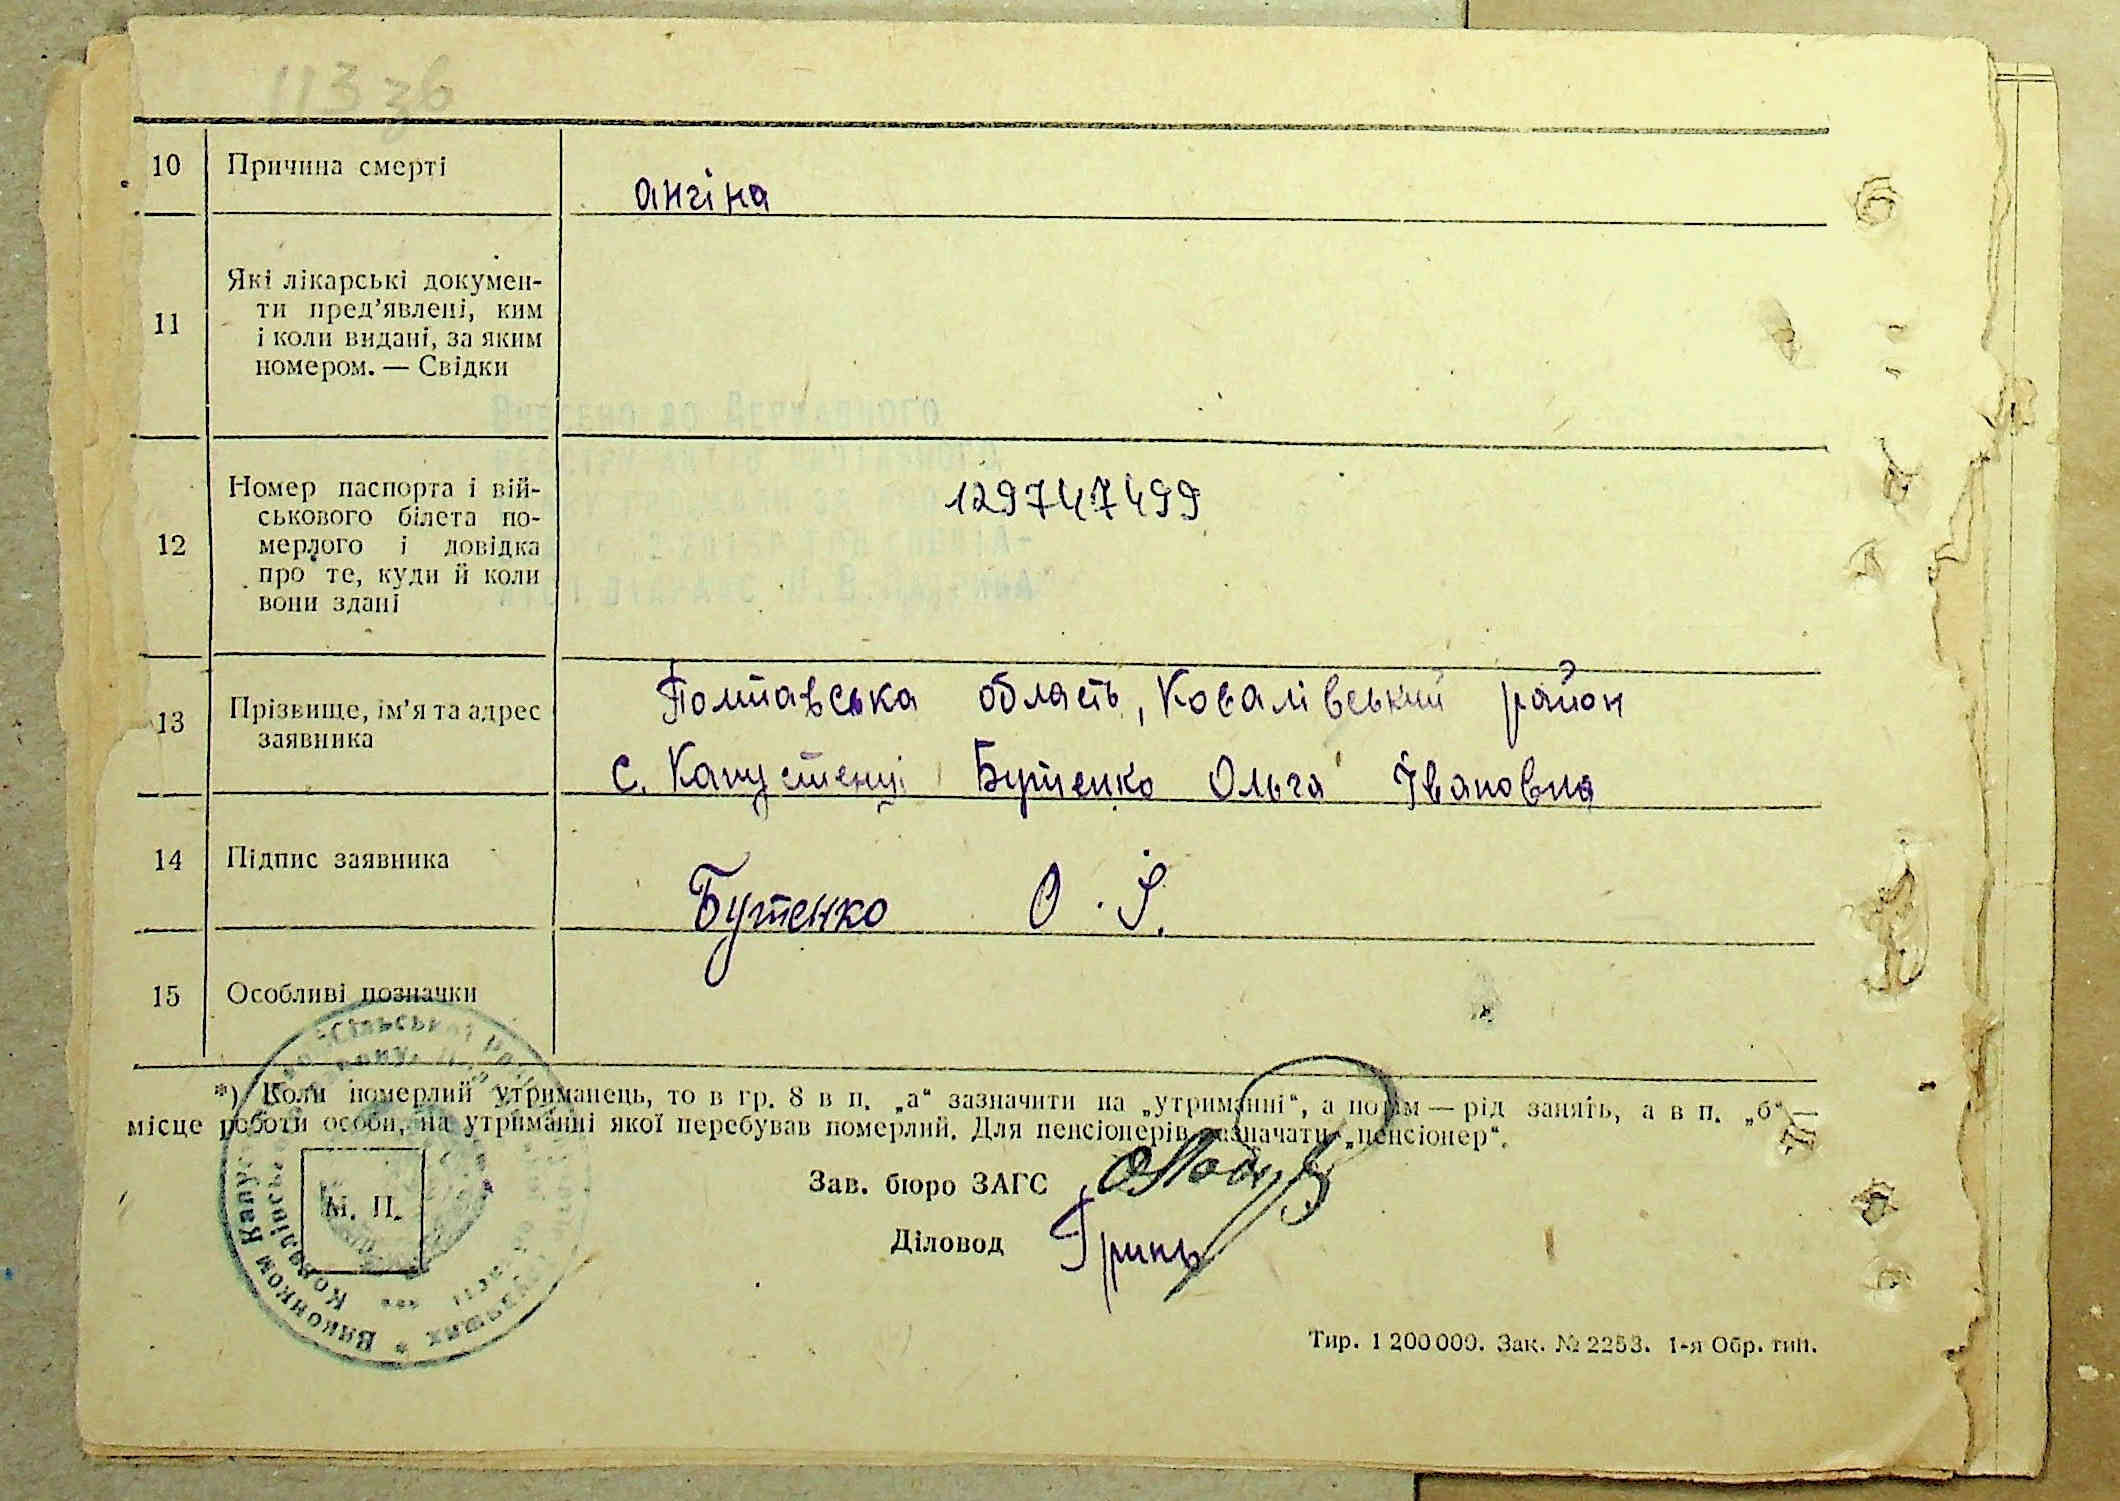 113 зв
10 Причина смерті
ангіна
11 Які лікарські докумен-
ти пред’явлені, ким
і коли видані, за яким
номером. — Свідки
12 Номер паспорта і вій-
ськового білета по-
мерлого і довідка
про те, куди й коли
вони здані
129747499
13 Прізвище, ім’я та адрес
заявника
Полтавська область, Ковалівський район
с. Капустенці Бутенко Ольга Івановна
14 Підпис заявника
Бутенко О. І.
15 Особливі позначки
*) Коли померлий утриманець, то в гр. 8 в п. „а“ зазначити на „утриманні“, а потім — рід занять, а в п. „б“
місце роботи особи, на утриманні якої перебував померлий. Для пенсіонерів зазначати „пенсіонер“.
М. П.
Виконком
Зав. бюро ЗАГС
Діловод Гринь
Тир. 1 200 000. Зак. № 2253. 1-я Обр. тип.